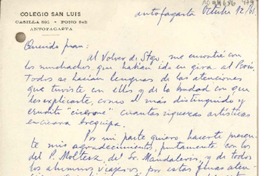 COLEGIO SAN LUIS
ANTOFAGASTA
Antofagasta Octubre 12/41
Querido Juan:
Al volver de Stgo me encontré con
los muchachos que habían ido en gira al Perú.
Todos se hacían lenguas de las atenciones
que tuviste en ellos y de la bondad con que
les explicaste, como el más distinguido y
erudito cicerone cuantas riquezas artísticas
encierra Arequipa.
Por mi parte quiero hacerte presente
mis agradecimientos, juntamente con los
del P. y de todos
los alumnos viajeros, por estas finas aten